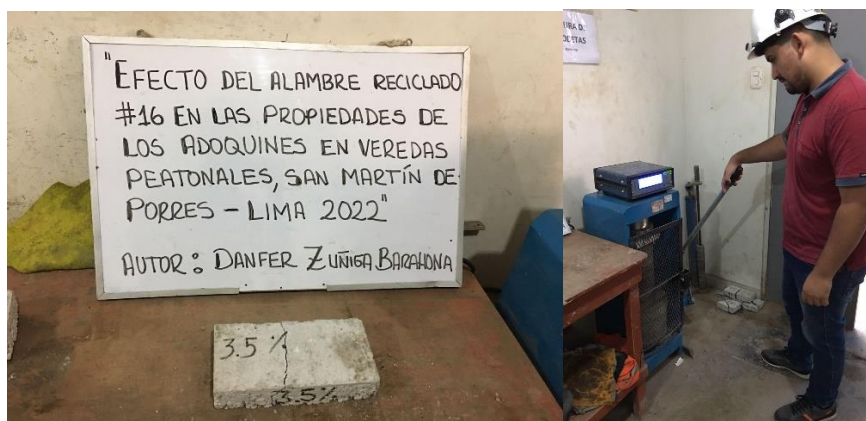 "EFECTO DEL ALAMBRE RECICLADO
#16 EN LAS PROPIEDADES DE
LOS ADOQUINES EN VEREDAS
PEATONALES, SAN MARTÍN DE
PORRES - LIMA 2022"
AUTOR: DANFER ZUÑIGA BARAHONA
3.5%
3.5%